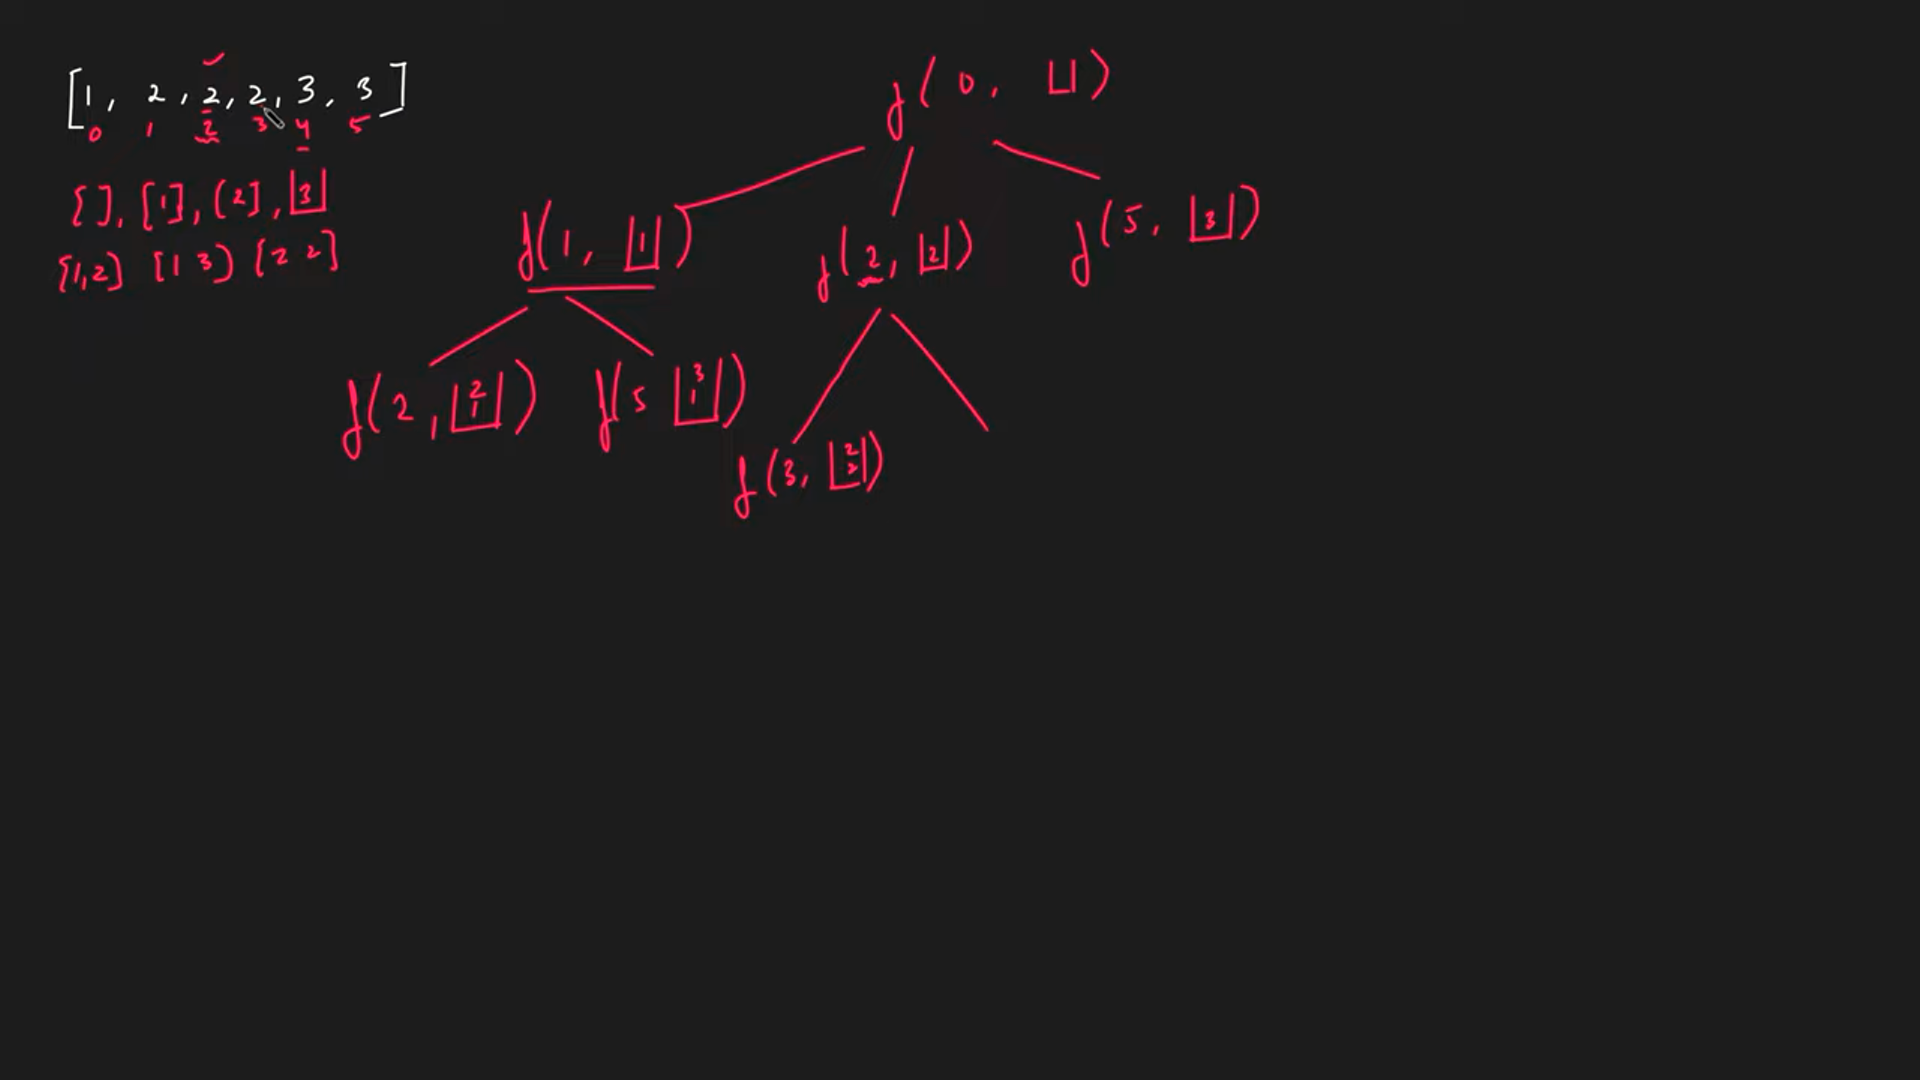 [1, 2, 2, 2, 3, 3]
0 1 2 3 4 5
[], [1], [2], [3]
[1,2] [1 3] [2 2]
f(0, [])
f(1, [1]) f(2, [2]) f(5, [3])
f(2, [2 1]) f(5 [3 1])
f(3, [2 2])